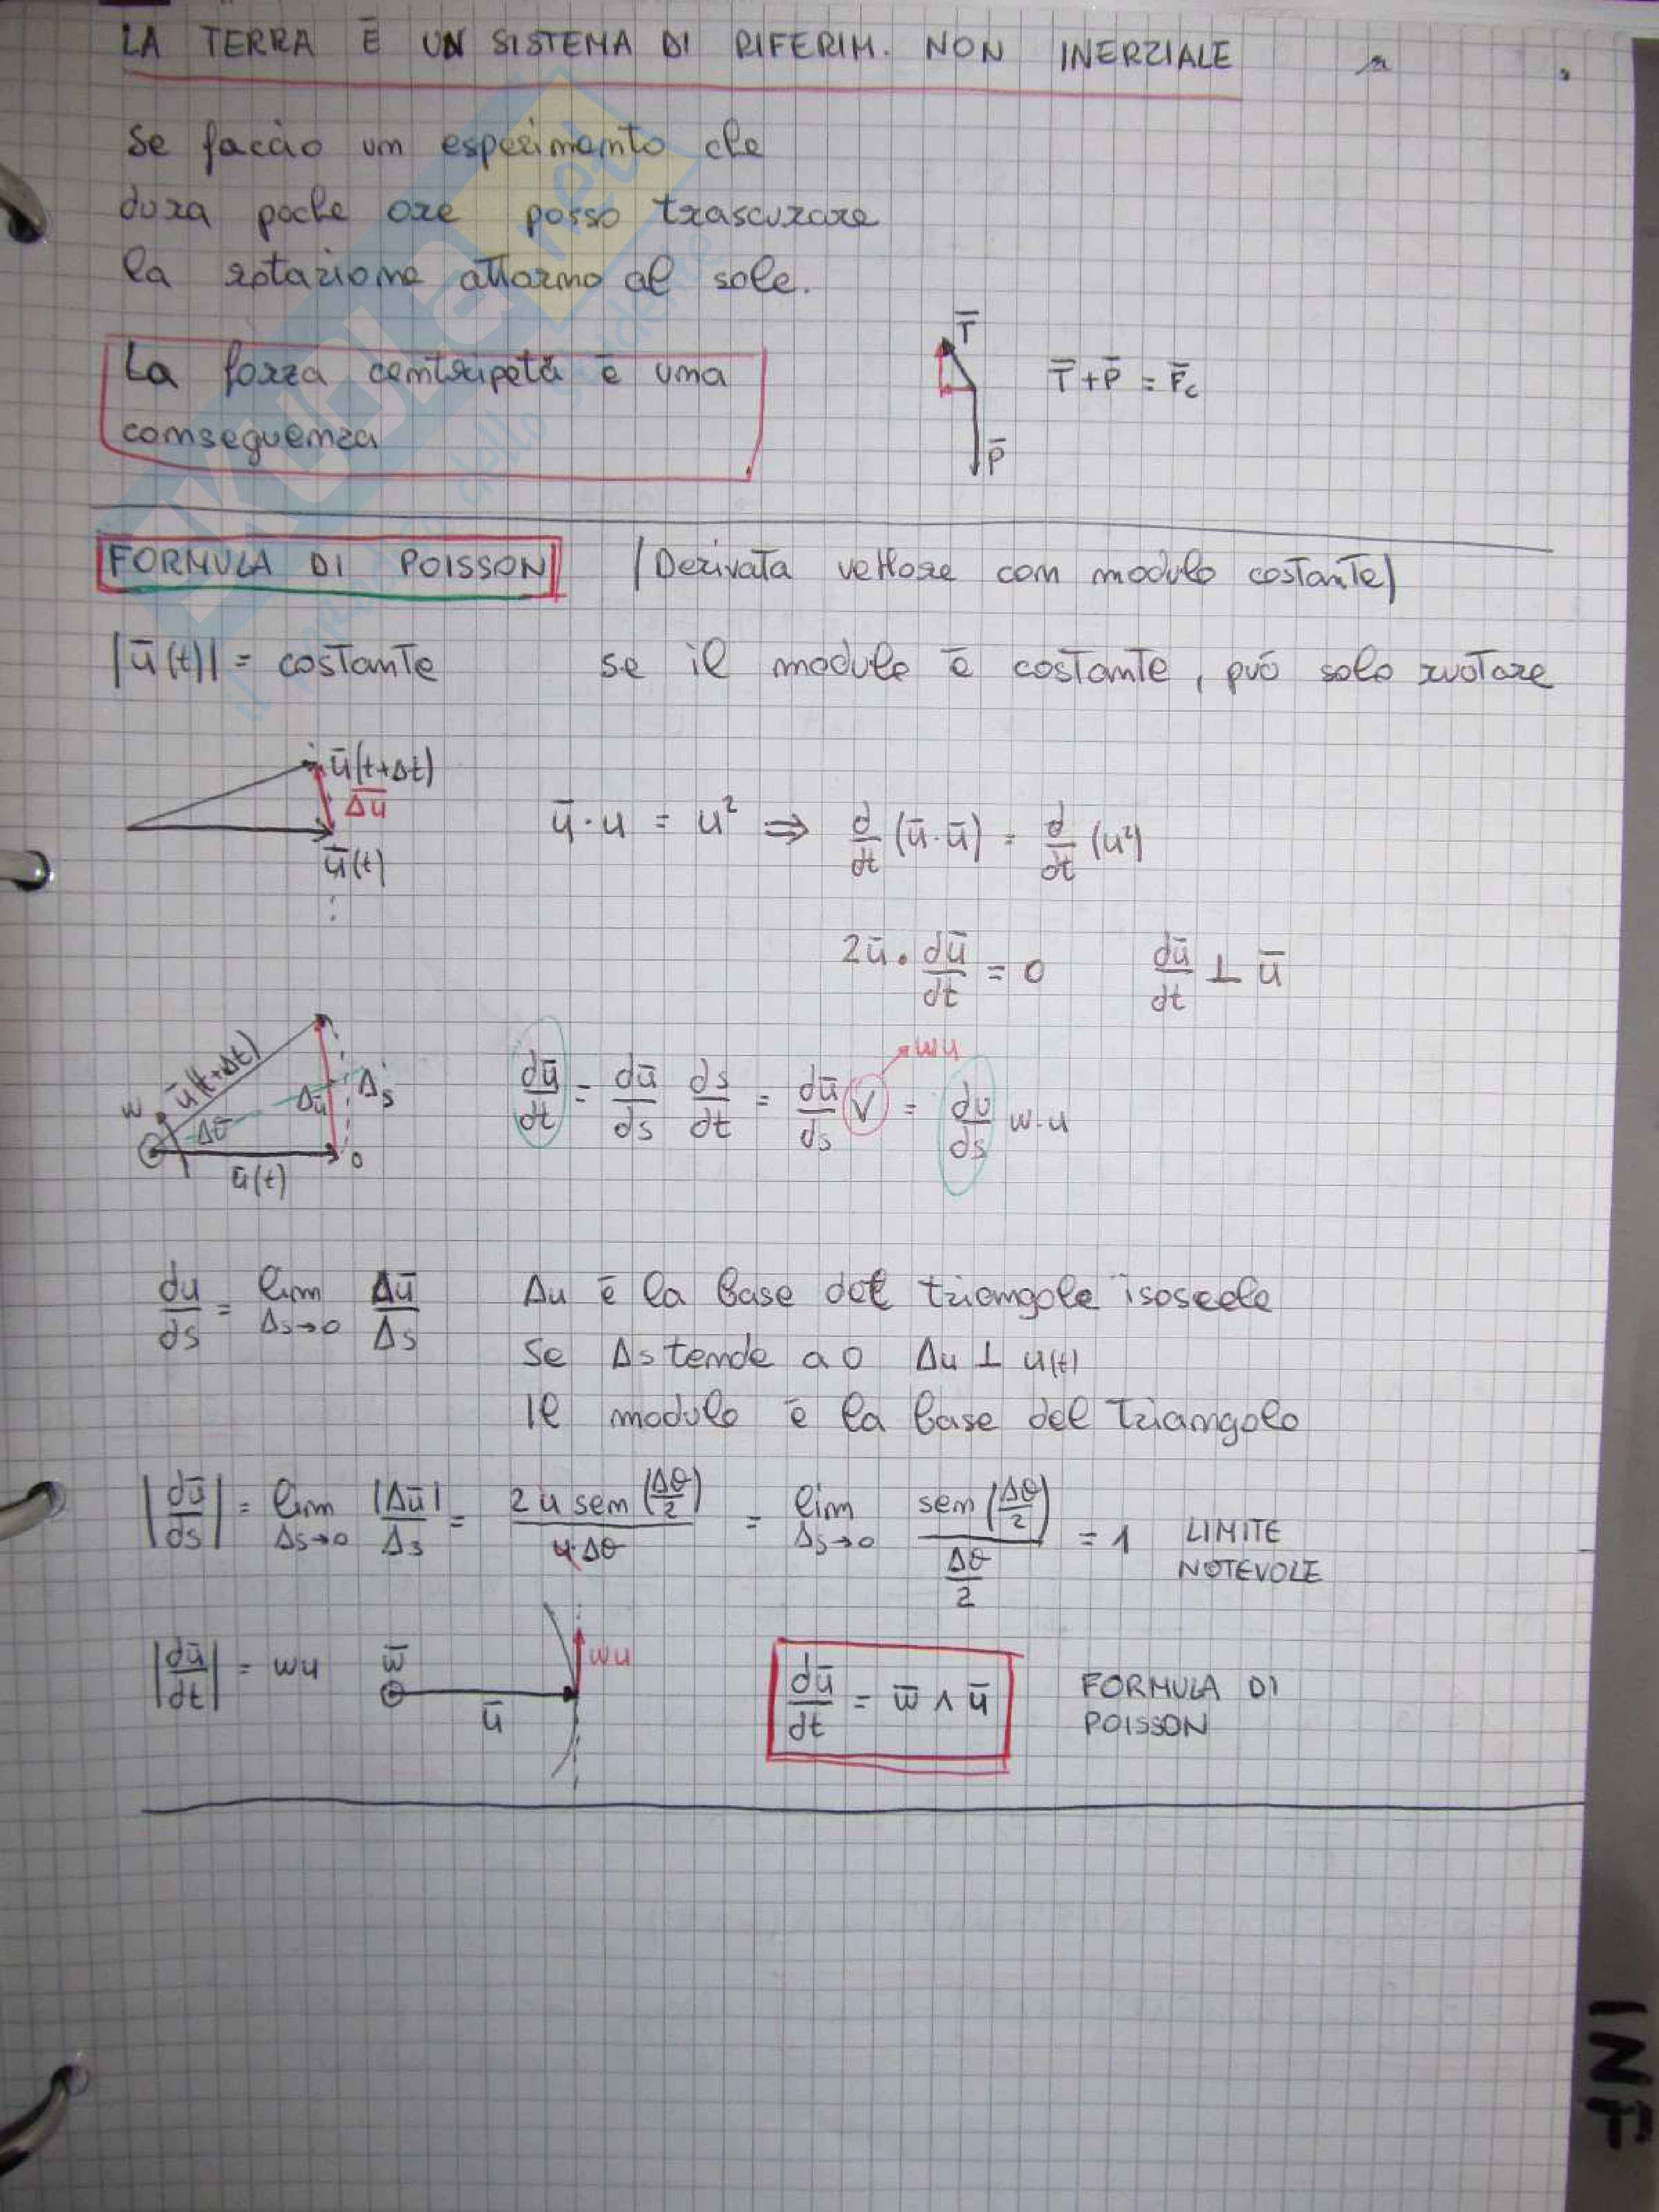 LA TERRA È UN SISTEMA DI RIFERIM. NON INERZIALE
Se faccio un esperimento che
dura poche ore posso trascurare
la rotazione attorno al sole.
La forza centripeta è una
conseguenza
T̅
T̅ + P̅ = F̅c
P̅
FORMULA DI POISSON (Derivata vettore con modulo costante)
|u̅(t)| = costante se il modulo è costante, può solo ruotare
u̅(t+Δt)
Δu̅
u̅(t)
u̅·u = u² ⇒ d/dt (u̅·u̅) = d/dt (u²)
2u̅ · du̅/dt = 0 du̅/dt ⊥ u̅
u̅(t+Δt)
w
Δθ
Δu̅
Δs
u̅(t)
0
wu
du̅/dt = du̅/ds ds/dt = du̅/ds v = du/ds w·u
du/ds = lim Δs→0 Δu̅/Δs Δu è la base del triangolo isoscele
Se Δs tende a 0 Δu ⊥ u(t)
Il modulo è la base del triangolo
|du̅/ds| = lim Δs→0 |Δu̅|/Δs = 2 u sen (Δθ/2) / u·Δθ = lim Δs→0 sen (Δθ/2) / Δθ/2 = 1 LIMITE
NOTEVOLE
|du̅/dt| = wu
w̅
u̅
wu
du̅/dt = w̅ ∧ u̅ FORMULA DI
POISSON
INF
SKUOLA.net